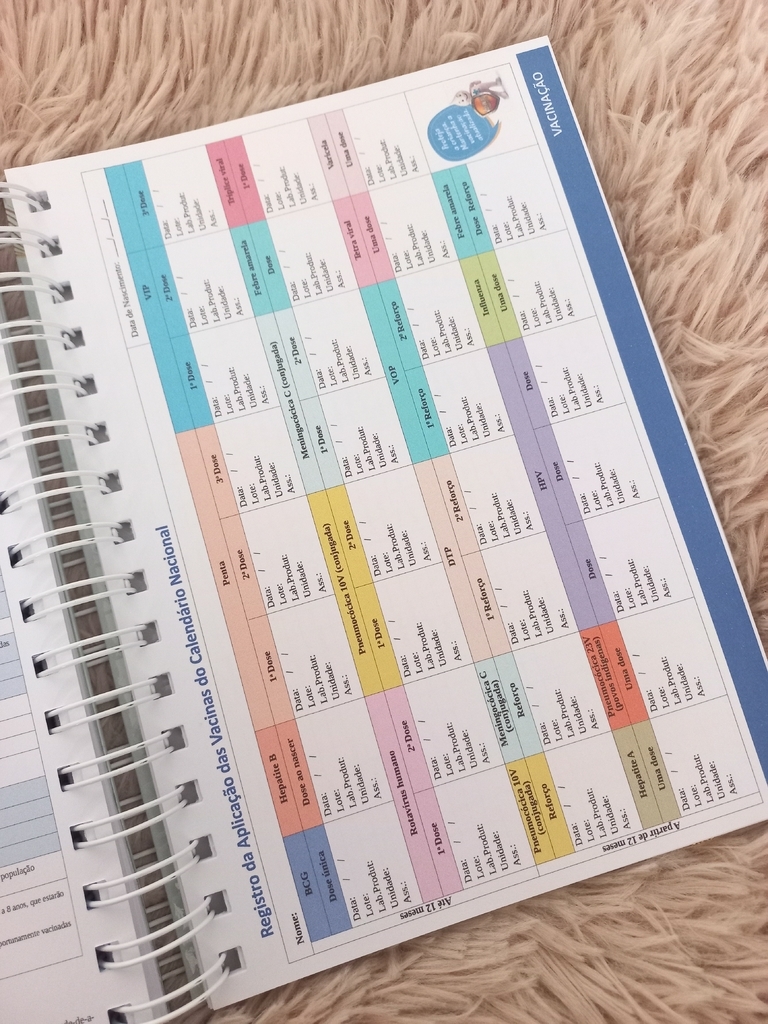 população
a 8 anos, que estarão
portunamente vacinadas
Registro da Aplicação das Vacinas do Calendário Nacional
Nome: Data de Nascimento: __/__/__
Até 12 meses
BCG Hepatite B Penta VIP
Dose única Dose ao nascer 1ª Dose 2ª Dose 3ª Dose 1ª Dose 2ª Dose 3ª Dose
Data: / / Data: / / Data: / / Data: / / Data: / / Data: / / Data: / / Data: / /
Lote: Lote: Lote: Lote: Lote: Lote: Lote: Lote:
Lab.Produt: Lab.Produt: Lab.Produt: Lab.Produt: Lab.Produt: Lab.Produt: Lab.Produt: Lab.Produt:
Unidade: Unidade: Unidade: Unidade: Unidade: Unidade: Unidade: Unidade:
Ass.: Ass.: Ass.: Ass.: Ass.: Ass.: Ass.: Ass.:
Rotavírus humano Pneumocócica 10V (conjugada) Meningocócica C (conjugada) Febre amarela Tríplice viral
1ª Dose 2ª Dose 1ª Dose 2ª Dose 1ª Dose 2ª Dose Dose 1ª Dose
Data: / / Data: / / Data: / / Data: / / Data: / / Data: / / Data: / / Data: / /
Lote: Lote: Lote: Lote: Lote: Lote: Lote: Lote:
Lab.Produt: Lab.Produt: Lab.Produt: Lab.Produt: Lab.Produt: Lab.Produt: Lab.Produt: Lab.Produt:
Unidade: Unidade: Unidade: Unidade: Unidade: Unidade: Unidade: Unidade:
Ass.: Ass.: Ass.: Ass.: Ass.: Ass.: Ass.: Ass.:
A partir de 12 meses
Pneumocócica 10V Meningocócica C DTP VOP Tetra viral Varicela
(conjugada) (conjugada)
Reforço Reforço 1º Reforço 2º Reforço 1º Reforço 2º Reforço Uma dose Uma dose
Data: / / Data: / / Data: / / Data: / / Data: / / Data: / / Data: / / Data: / /
Lote: Lote: Lote: Lote: Lote: Lote: Lote: Lote:
Lab.Produt: Lab.Produt: Lab.Produt: Lab.Produt: Lab.Produt: Lab.Produt: Lab.Produt: Lab.Produt:
Unidade: Unidade: Unidade: Unidade: Unidade: Unidade: Unidade: Unidade:
Ass.: Ass.: Ass.: Ass.: Ass.: Ass.: Ass.: Ass.:
Hepatite A Pneumocócica 23V HPV Influenza Febre amarela
(povos indígenas)
Uma dose Uma dose Dose Dose Dose Uma dose Dose Reforço
Data: / / Data: / / Data: / / Data: / / Data: / / Data: / / Data: / /
Lote: Lote: Lote: Lote: Lote: Lote: Lote:
Lab.Produt: Lab.Produt: Lab.Produt: Lab.Produt: Lab.Produt: Lab.Produt: Lab.Produt:
Unidade: Unidade: Unidade: Unidade: Unidade: Unidade: Unidade:
Ass.: Ass.: Ass.: Ass.: Ass.: Ass.: Ass.:
VACINAÇÃO